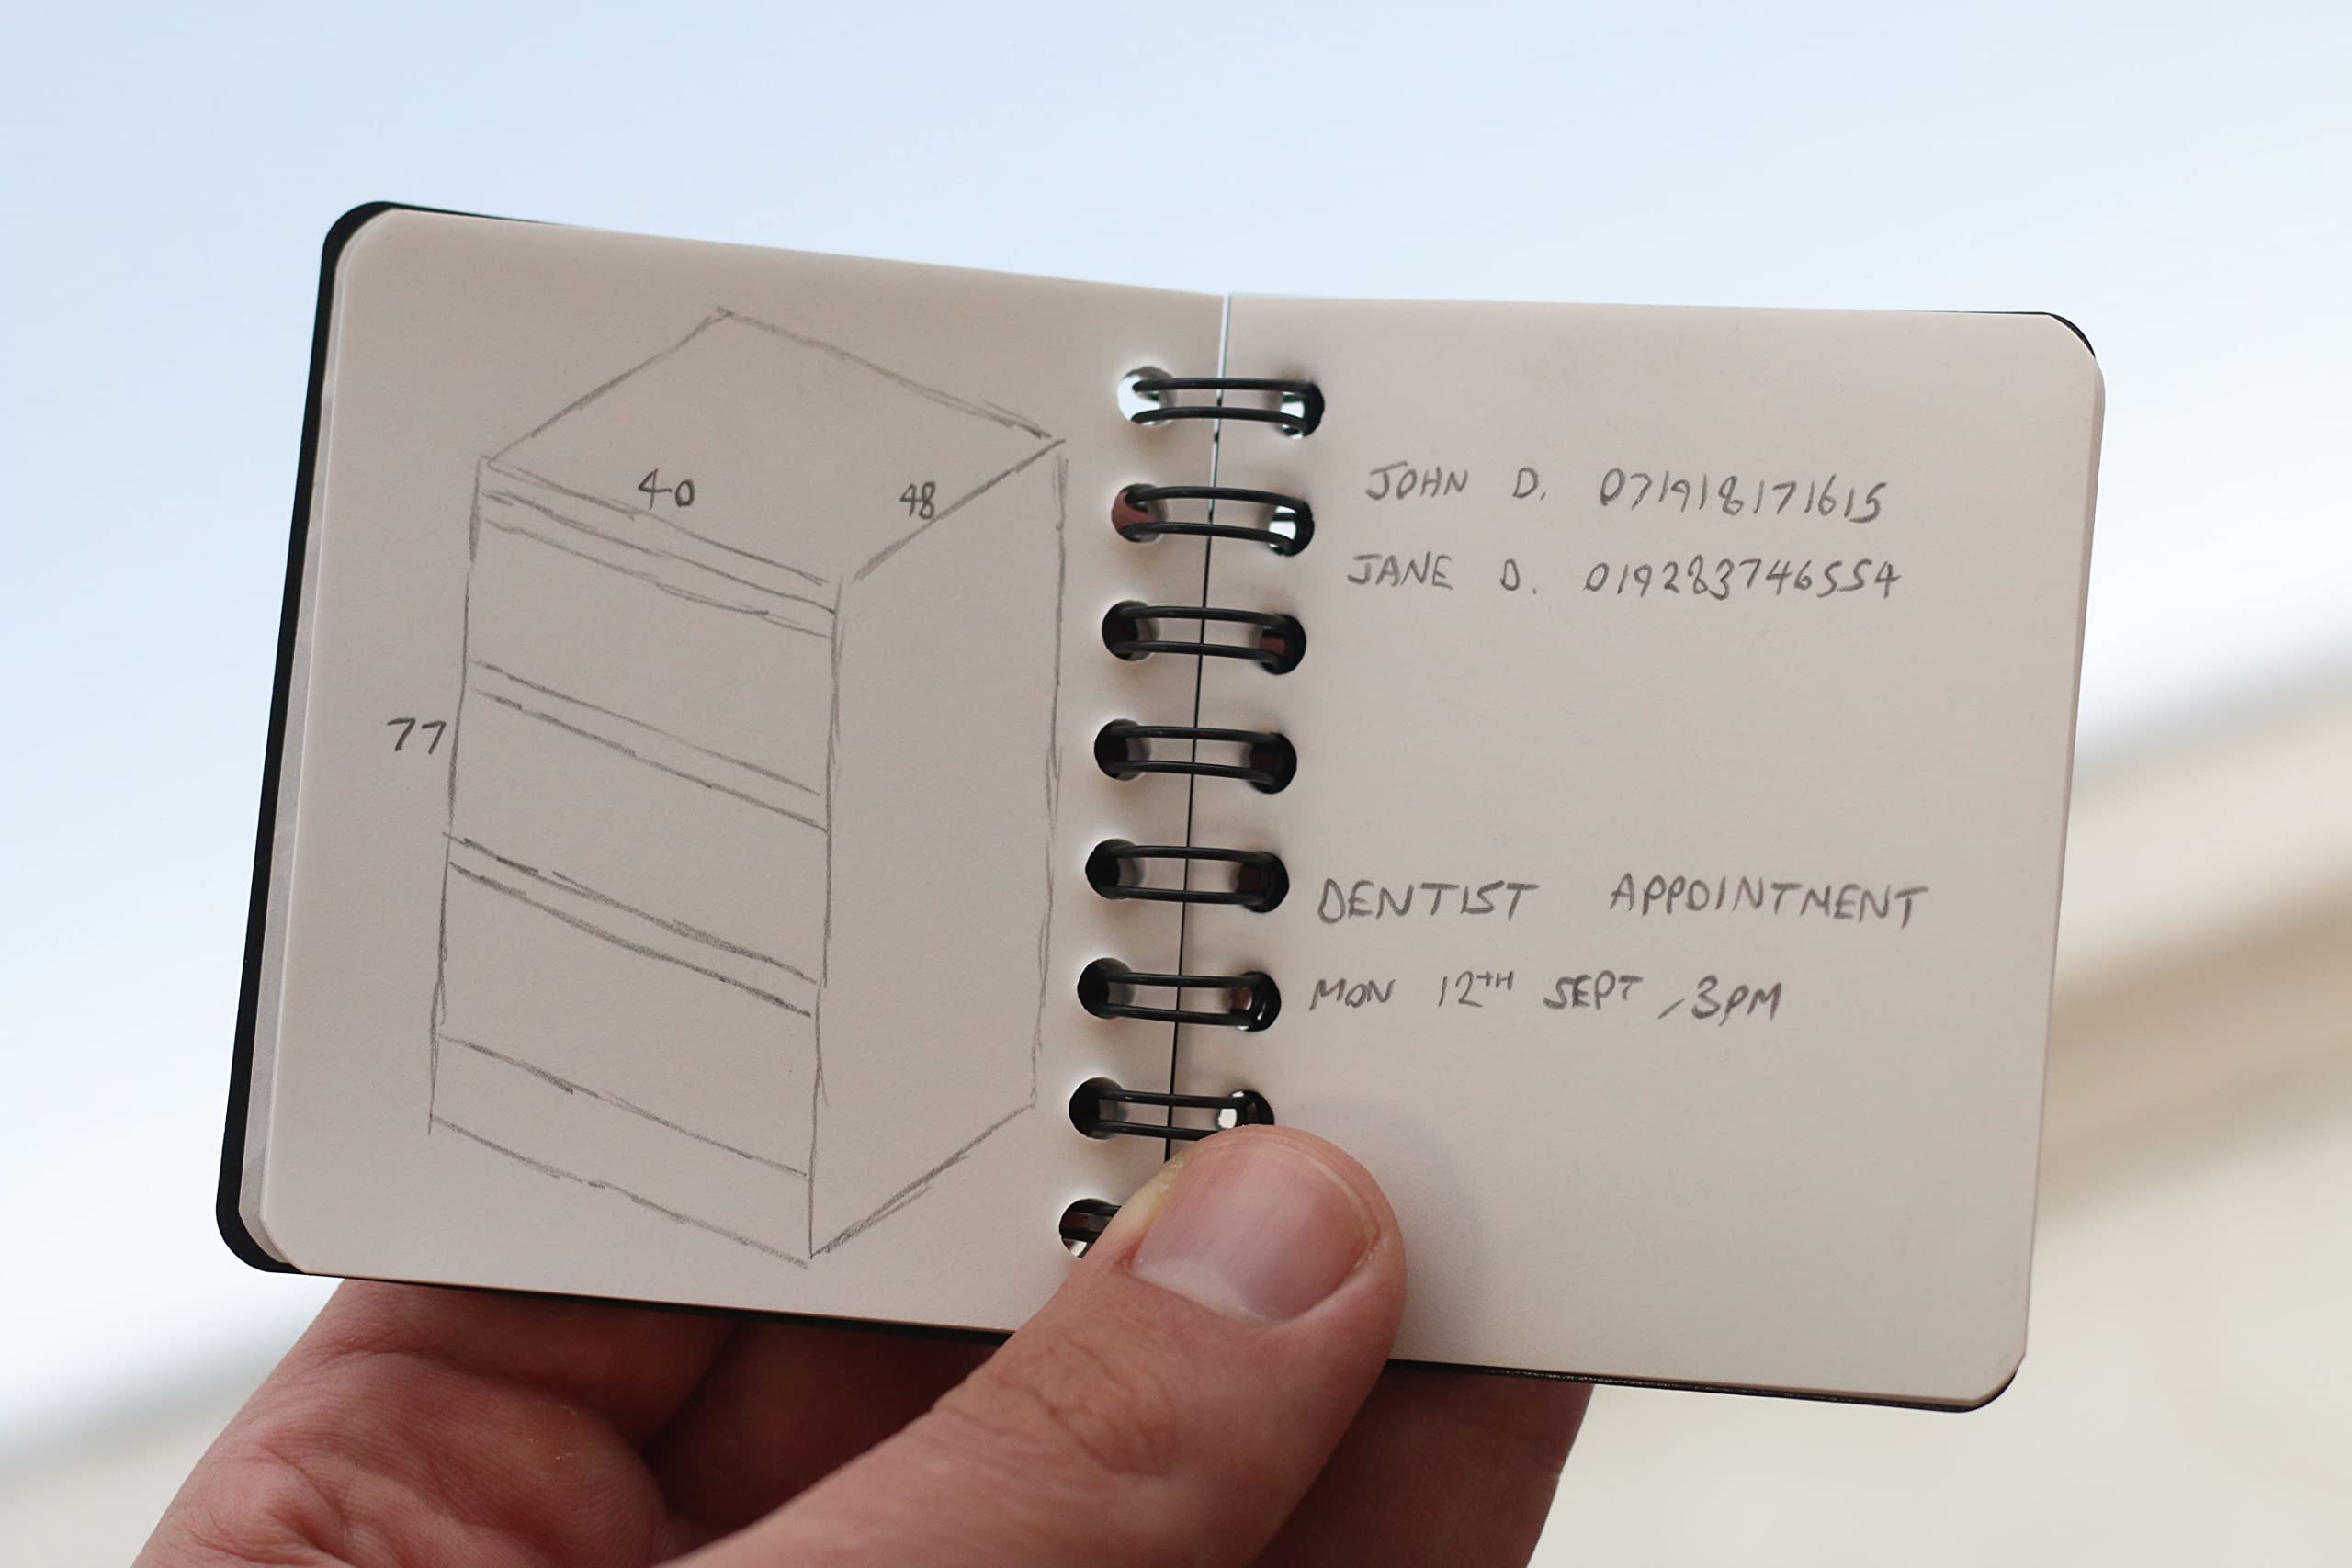 40
48
77
JOHN D. 071918171615
JANE D. 019283746554
DENTIST APPOINTMENT
MON 12TH SEPT, 3PM